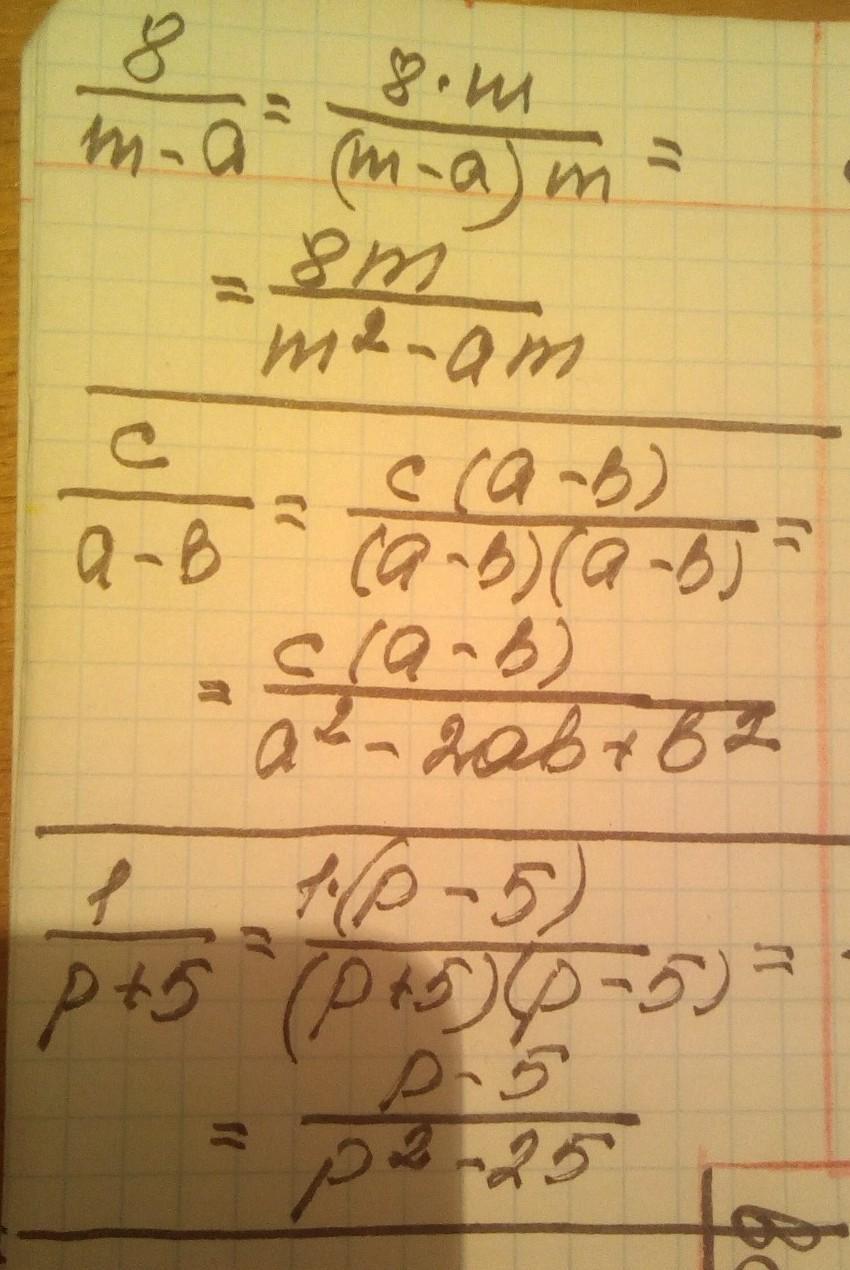 8/(m-a) = (8·m)/((m-a)m) =
= 8m/(m²-am)
c/(a-b) = c(a-b)/((a-b)(a-b)) =
= c(a-b)/(a²-2ab+b²)
1/(p+5) = 1·(p-5)/((p+5)(p-5)) =
= (p-5)/(p²-25)